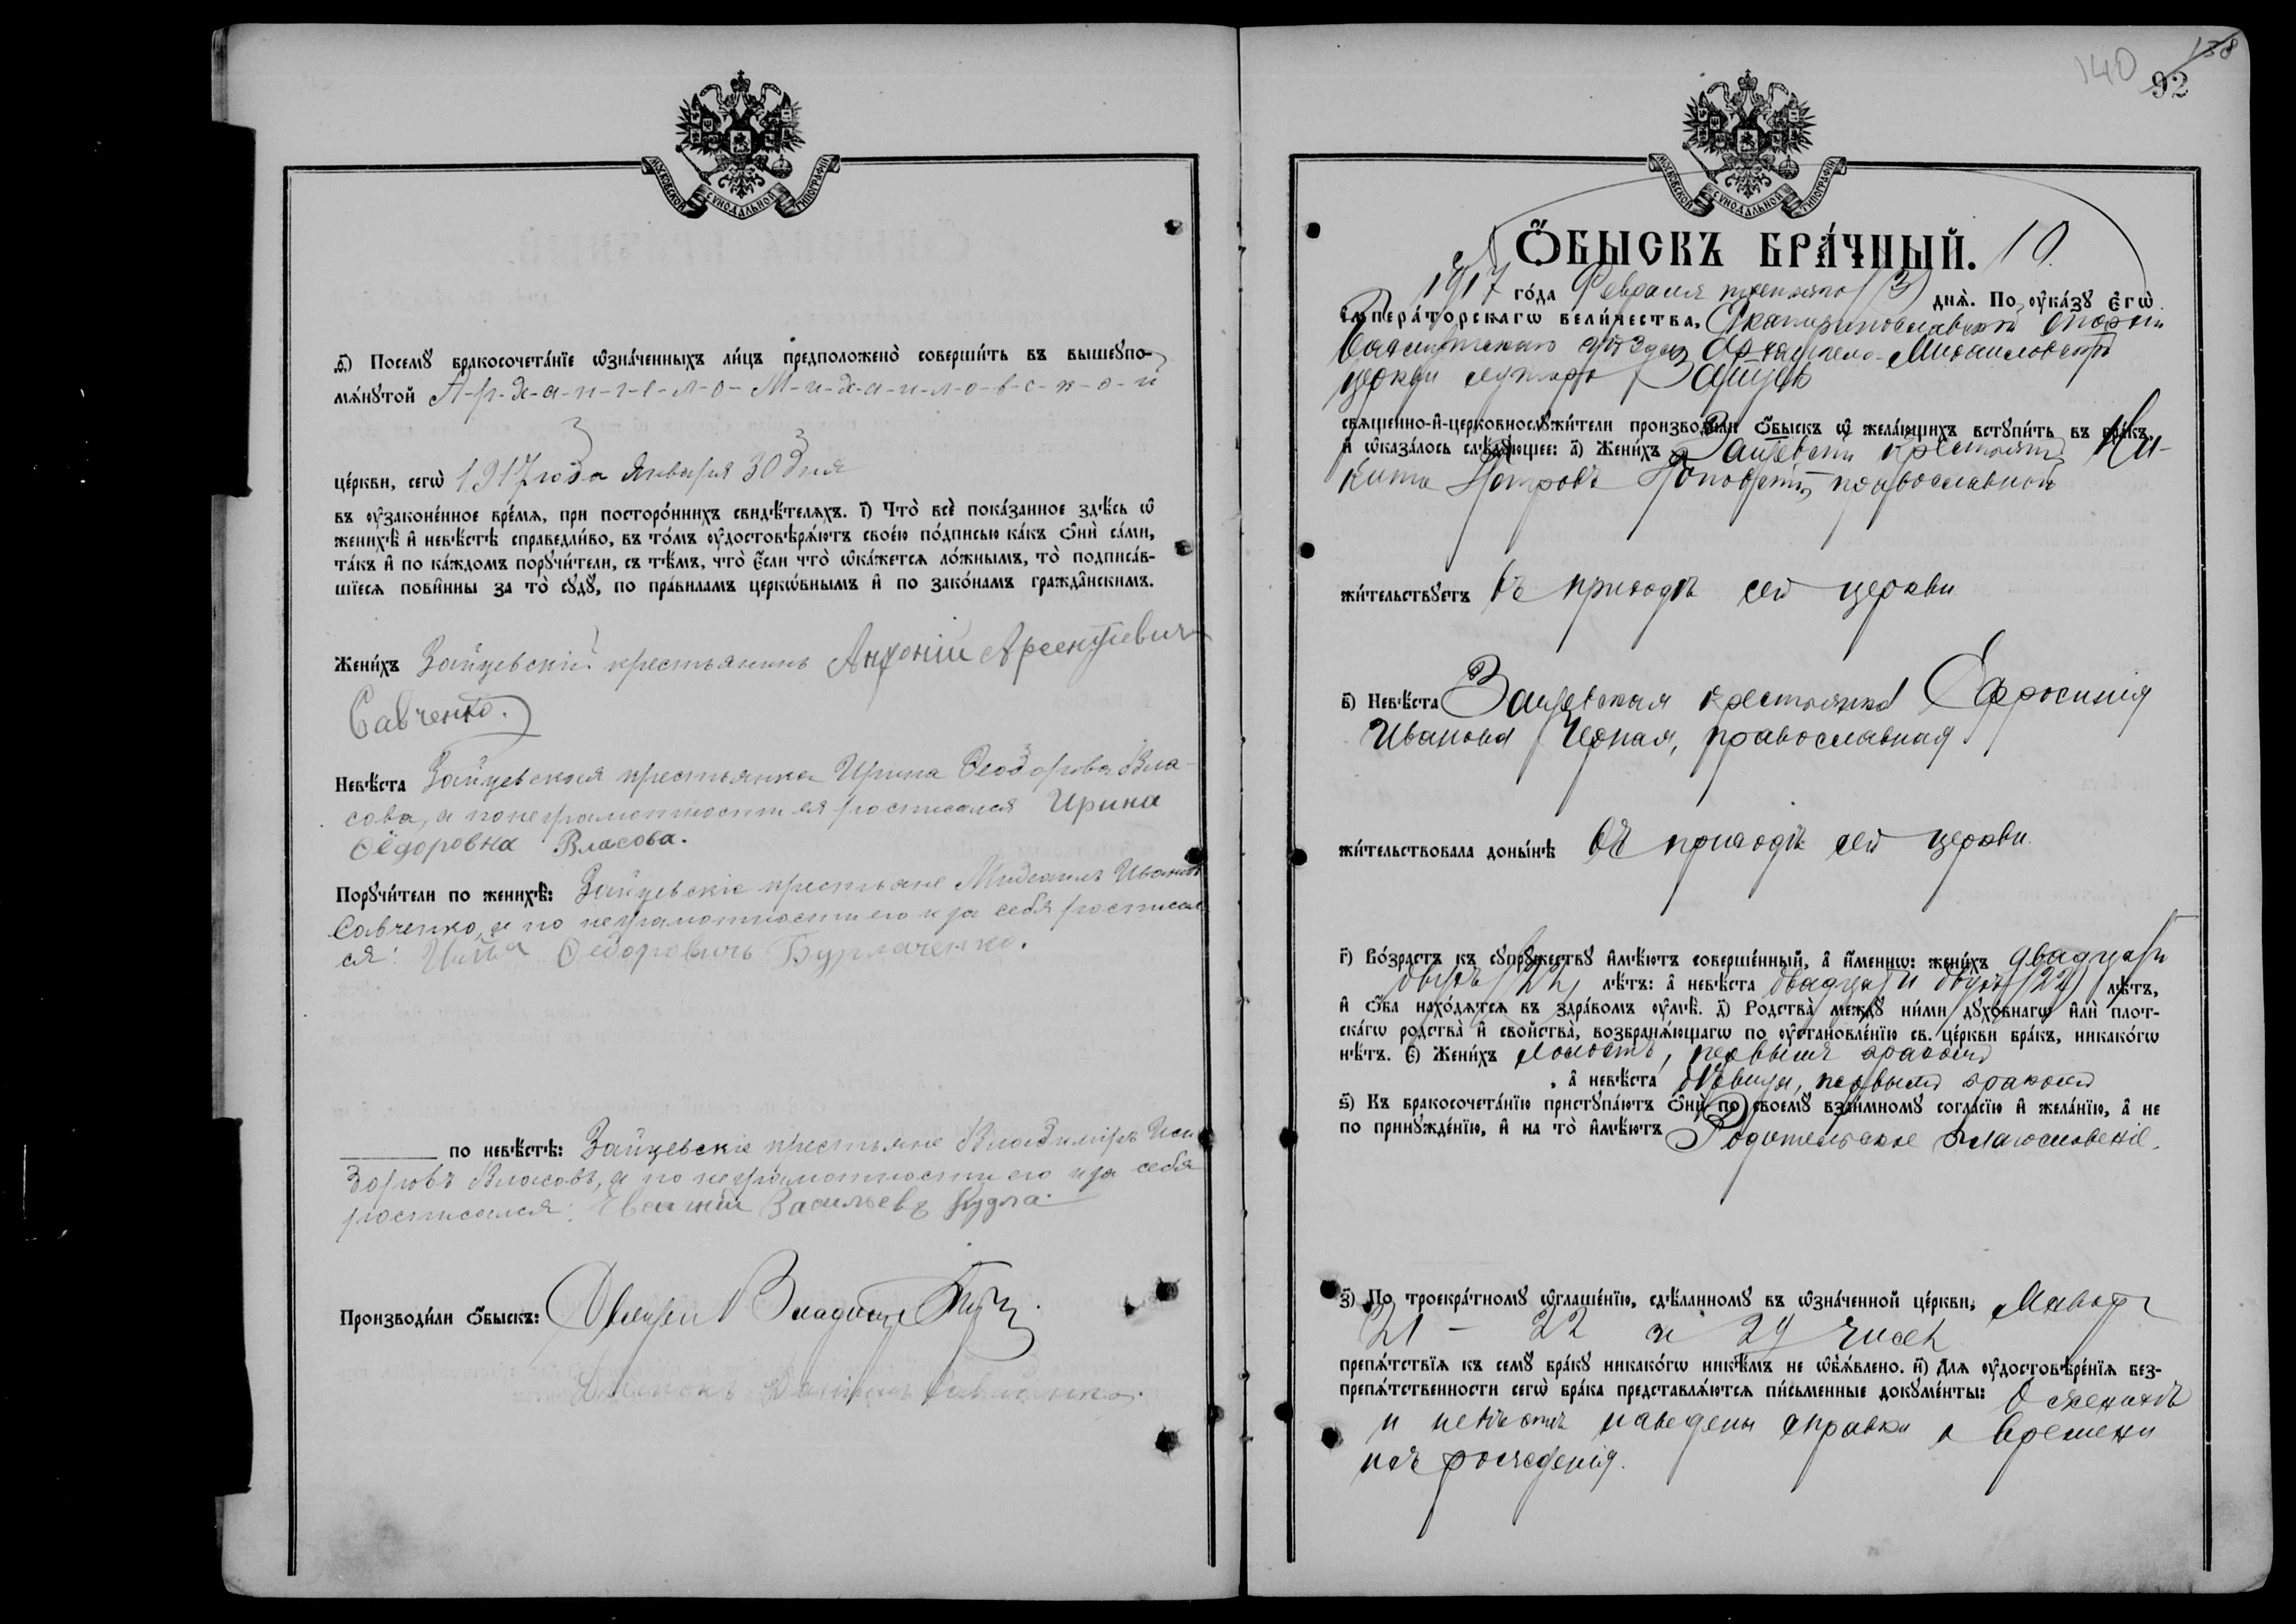 МОСКОВСКОЙ СѴНОДАЛЬНОЙ ТИПОГРАФІИ
ѳ҃) Посемꙋ бракосочета́нїе ѡ҆зна́ченныхъ ли́цъ предположено̀ соверши́ть въ вышеꙋпо-
мѧ́нꙋтой А-р-х-а-н-г-е-л-о-М-и-х-а-и-л-о-в-с-к-о-й
це́ркви, сегѡ̀ 1917 года Января 30 дня
въ ᲂу҆законе́нное вре́мѧ, при посторо́ннихъ свидѣ́телѧхъ. і҃) Что̀ всѐ пока́занное здѣ́сь ѡ҆
женихѣ̀ и҆ невѣ́стѣ справедли́во, въ то́мъ ᲂу҆достовѣрѧ́ютъ свое́ю по́дписью ка́къ ѻ҆нѝ са́ми,
та́къ и҆ по ка́ждомъ порꙋчи́тели, съ тѣ́мъ, что̀ є҆́сли что̀ ѡ҆ка́жетсѧ ло́жнымъ, то̀ подписа́в-
шїесѧ пови́нны за то̀ сꙋдꙋ̀, по пра́виламъ церкѡ́внымъ и҆ по зако́намъ гражда́нскимъ.
Жени́хъ Зайцевскій крестьянинъ Антоній Арсентіевич
Савченко.
Невѣ́ста Зайцевская крестьянка Ирина Ѳеодорова Вла-
сова, а по неграмотности ея росписался Ирина
Ѳёдоровна Власова.
Порꙋчи́тели по женихѣ̀: Зайцевскіе крестьяне Михаилъ Ивановъ
Савченко, а по неграмотности его и за себя росписал
ся: Илья Ѳедоровичъ Бурлаченко.
по невѣ́стѣ: Зайцевскіе крестьяне Владимиръ Иси
доровъ Власовъ, а по неграмотности его и за себя
росписался: Евгеній Васильевъ Кудла.
Производи́ли ѻ҆́быскъ:
140 138
92
МОСКОВСКОЙ СѴНОДАЛЬНОЙ ТИПОГРАФІИ
Ѻ҆́БЫСКЪ БРА́ЧНЫЙ. 10.
1917 го́да Февраля третьяго (3) днѧ̀. По ᲂу҆ка́зꙋ є҆гѡ̀
і҆мпера́торскагѡ вели́чества, Екатеринославской Епархіи
Бахмутскаго уѣзда Архангело-Михайловской
церкви хутора Зайцева
свѧще́нно-и҆-церковнослꙋжи́тели производи́ли ѻ҆́быскъ ѡ҆ жела́ющихъ встꙋпи́ть въ бра́къ,
и҆ ѡ҆каза́лось слѣ́дꙋющее: а҃) Жени́хъ Зайцевскій крестьянинъ Ни-
кита Петровъ православный
жи́тельствꙋетъ въ приходѣ сей церкви
в҃) Невѣ́ста Зайцевская крестьянка Ефросинія
Иванова Черная, православная
жи́тельствовала доны́нѣ въ приходѣ сей церкви.
г҃) Во́зрастъ къ сꙋпрꙋ́жествꙋ и҆мѣ́ютъ соверше́нный, а҆ и҆́меннѡ: жени́хъ двадцати
двухъ (22) лѣ́тъ: а҆ невѣ́ста двадцати двухъ (22) лѣ́тъ,
и҆ ѻ҆́ба нахо́дѧтсѧ въ здра́вомъ ᲂу҆мѣ̀. д҃) Родства̀ междꙋ̀ ни́ми дꙋхо́внагѡ и҆лѝ плот-
ска́гѡ родства̀ и҆ сво́йства̀, возбранѧ́ющагѡ по ᲂу҆становле́нїю св. це́ркви бра́къ, никако́гѡ
нѣ́тъ. є҃) Жени́хъ холостъ, первымъ бракомъ
, а҆ невѣ́ста дѣвица, первымъ бракомъ
ѕ҃) Къ бракосочета́нїю пристꙋпа́ютъ ѻ҆нѝ по своемꙋ̀ взаи́мномꙋ согла́сїю и҆ жела́нїю, а҆ не
по принꙋжде́нїю, и҆ на то̀ и҆мѣ́ютъ Родительское благословеніе.
з҃) По троекра́тномꙋ ѡ҆глаше́нїю, сдѣ́ланномꙋ въ ѡ҆зна́ченной це́ркви, Января
21 - 22 и 29 чиселъ
препѧ́тствїѧ къ семꙋ̀ бра́кꙋ никако́гѡ никѣ́мъ не ѡ҆б̾ѧ́влено. и҃) Длѧ ᲂу҆достовѣре́нїѧ без-
препѧ́тственности сегѡ̀ бра́ка представлѧ́ютсѧ пи́сьменные докꙋме́нты: О женихѣ
и невѣстѣ наведены справки о времени
ихъ рожденія.